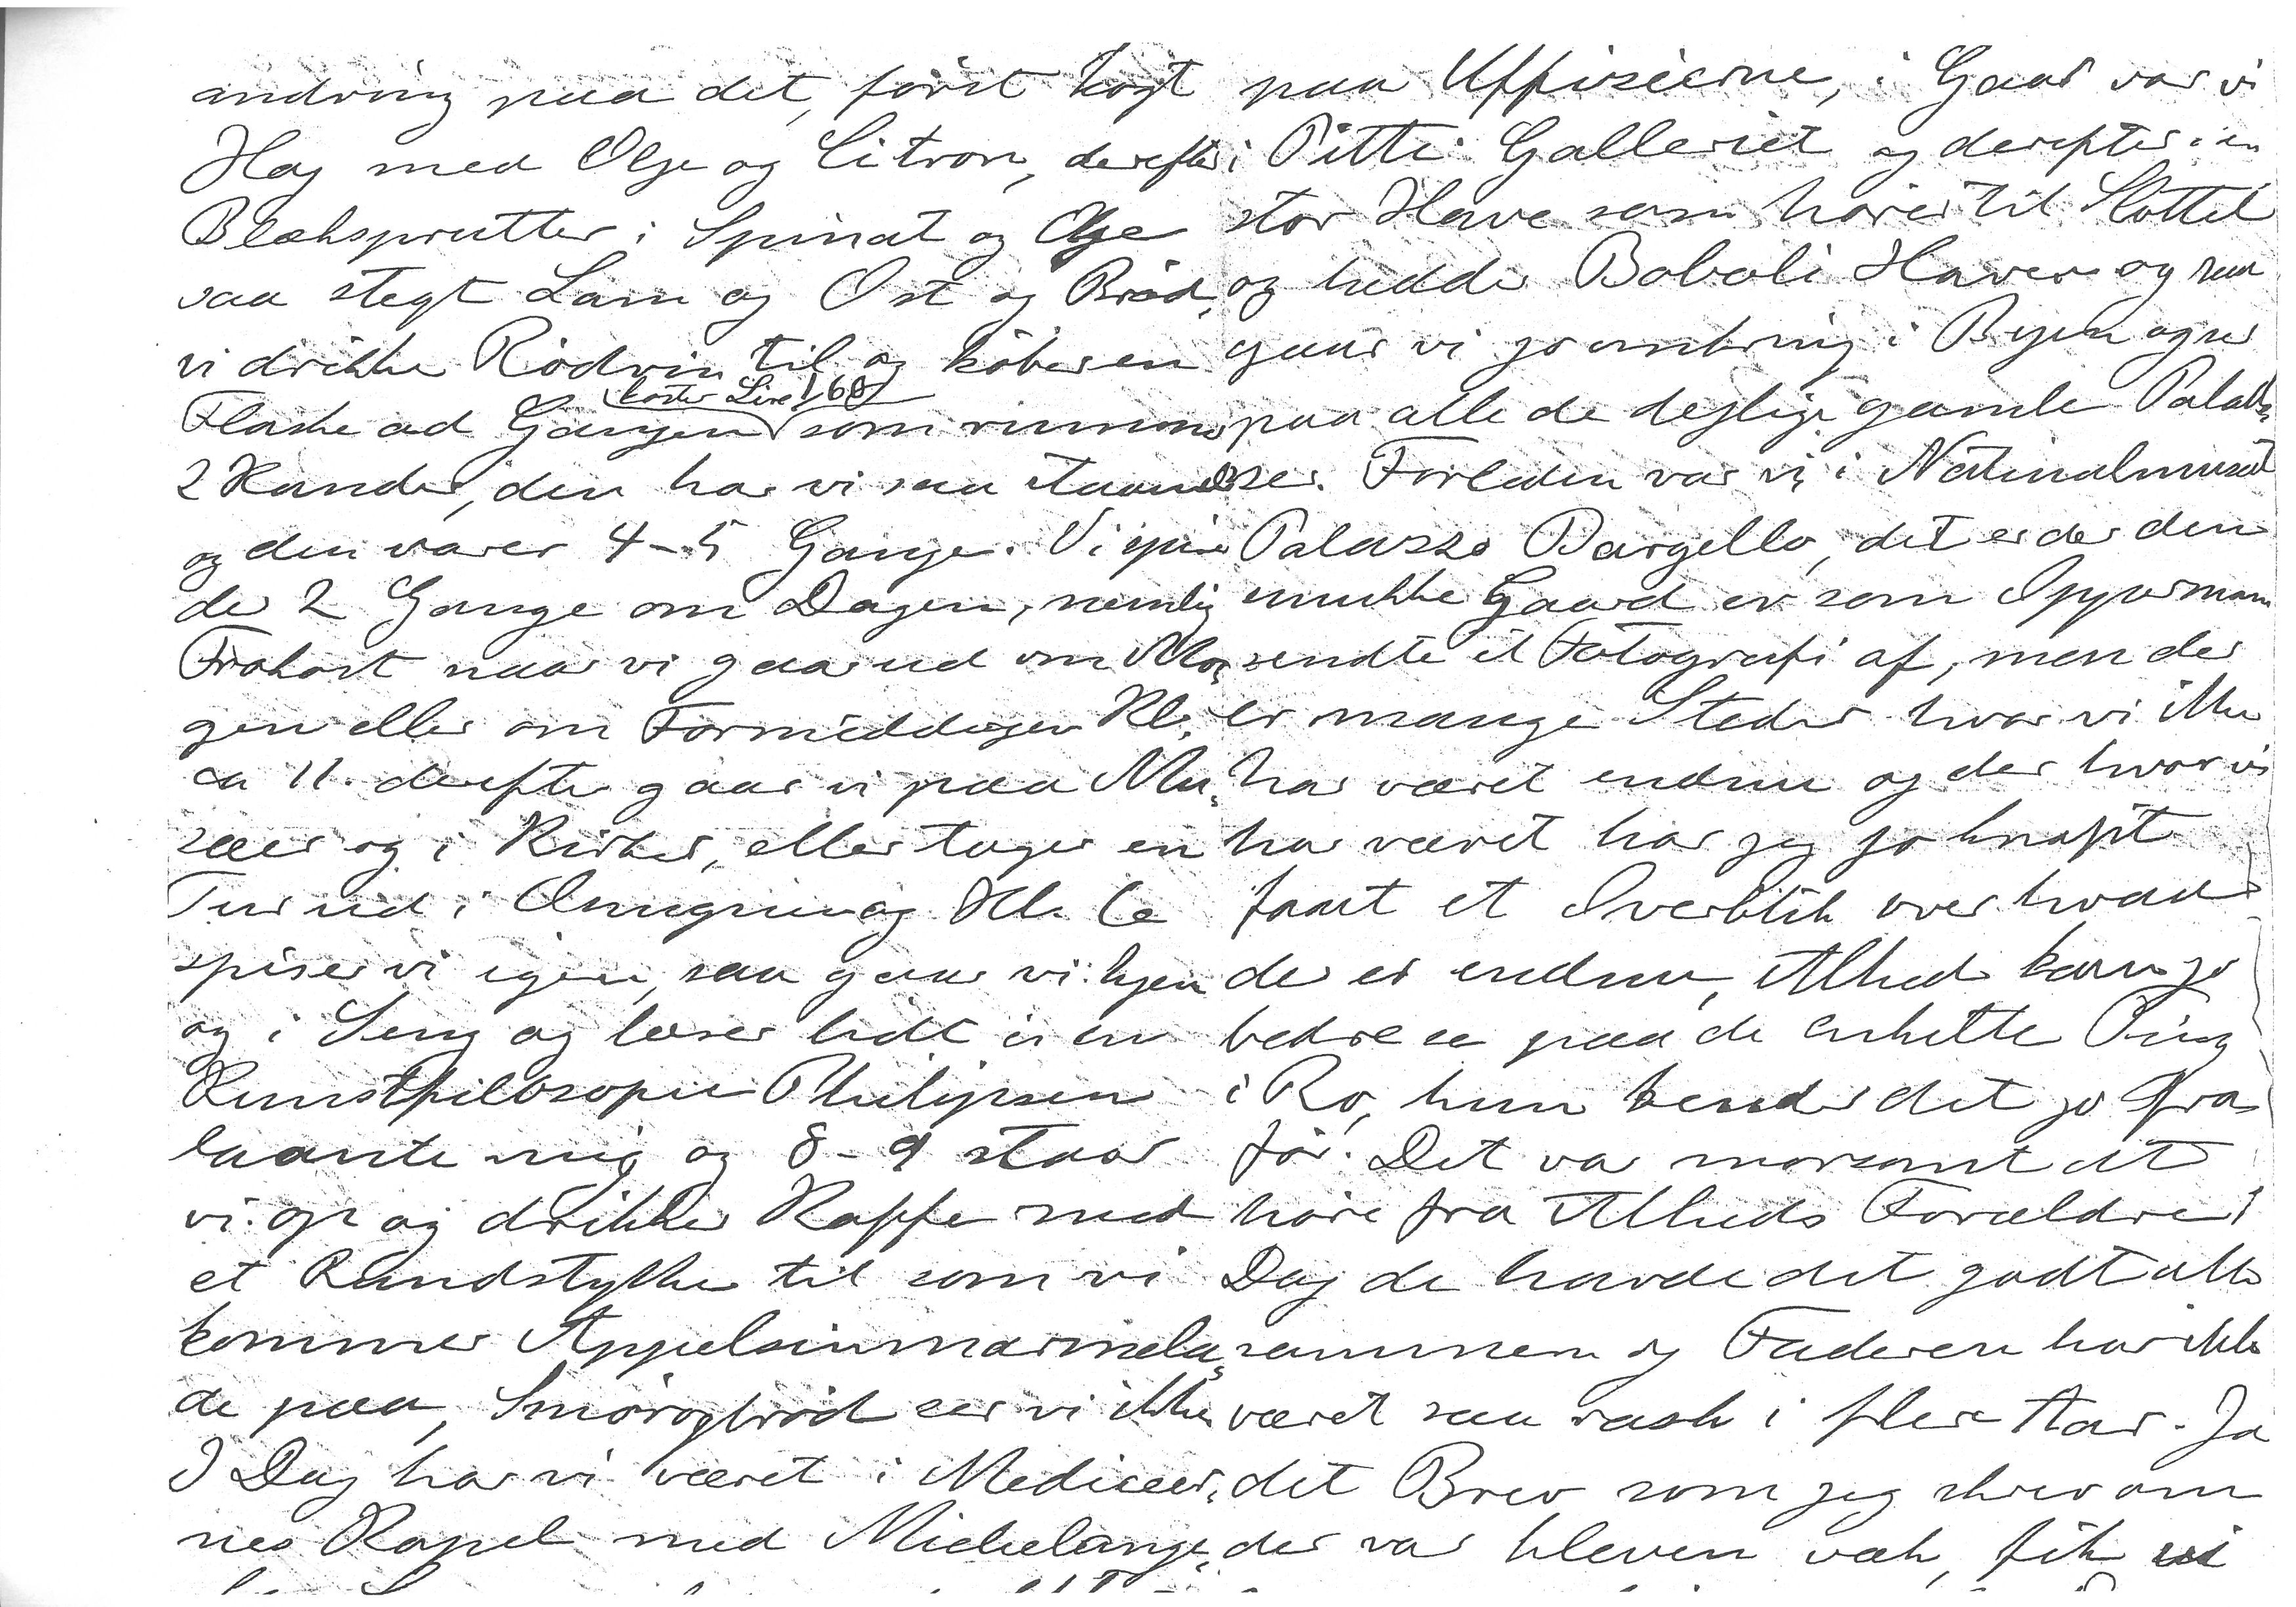 andring paa det, først kogt
Haj med Olje og Citron, derefter
Blæksprutter i Spinat og Olje
saa stegt Lam og Ost og Brød,
vi drikker Rødvin til og køber en
(koster Lire 1,60)
Flaske ad Gangen som rummer
2 Kander, den har vi saa staaende
og den varer 4-5 Gange. Vi spiser
der 2 Gange om Dagen, nemlig
Frokost naar vi gaar ud om Mor„
gen eller om Formiddagen Kl.
ca 11. derefter gaar vi paa Mu„
sæer og i Kirker, eller tager en
Tur ud i Omegnen og Kl. 6
spiser vi igen, saa gaar vi hjem
og i Seng og læser lidt i en
Kunstfilosopie Philipsen
laante mig og 8-9 staar
vi op og drikker Kaffe med
et Rundstykke til som vi
kommer Appelsinmarmela„
de paa, Smørogbrød ser vi ikke
I Dag har vi været i Mediceer„
nes Kapel med Michelange„
paa Uffizierne, i Gaar var vi
i Pitti Galleriet og derefter i en
stor Have som hører til Slottet
og hedder Boboli Haven og saa
gaar vi jo omkring i Byen og ser
paa alle de dejlige gamle Palad„
ser. Forleden var vi i Nationalmuseet
Palazzo Bargello, det er der den
smukke Gaard er som Oppermann
sendte et Fotografi af, men der
er mange Steder hvor vi ikke
har været endnu og der hvor vi
har været har jeg jo knapt
faaet et Overblik over hvad
der er endnu, Alhed kan jo
bedre se paa de enkelte Ting
i Ro, hun kender det jo fra
før. Det var morsomt at
høre fra Alheds Forældre i
Dag de havde det godt alle
sammen og Faderen har ikke
været saa rask i flere Aar. Ja
det Brev som jeg skrev om
der var bleven væk, fik vi